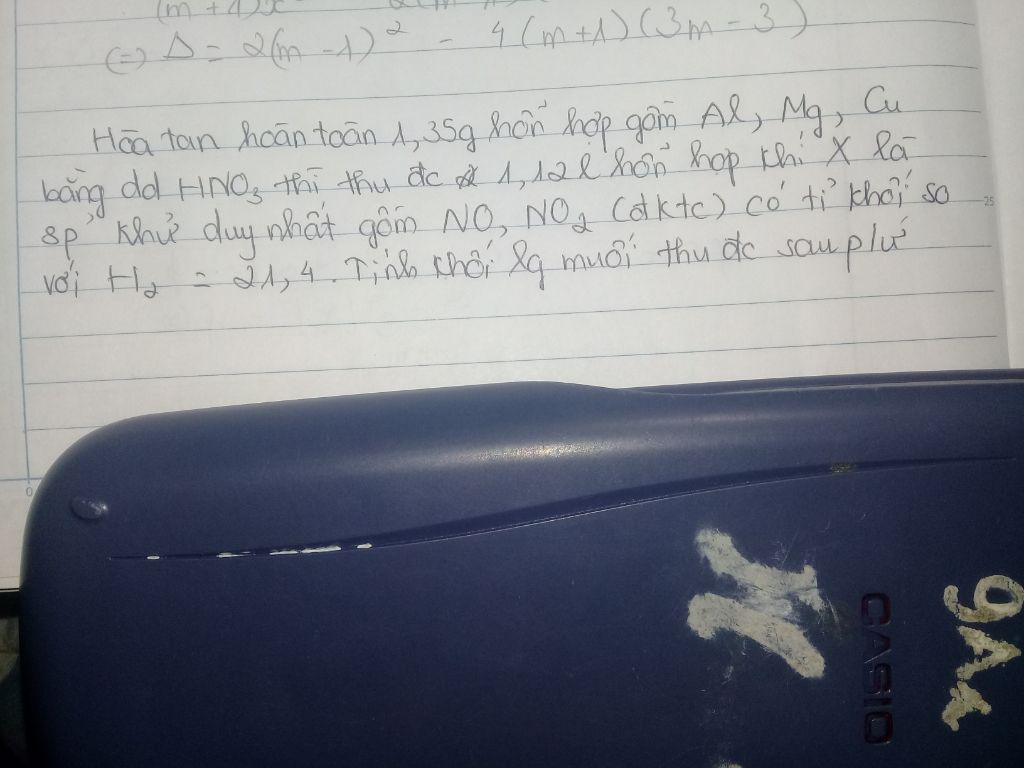 (m+1)x
(=) Δ = 2(m-1)² - 4(m+1)(3m-3)
Hòa tan hoàn toàn 1,35g hỗn hợp gồm Al, Mg, Cu
bằng dd HNO₃ thì thu đc 1,12l hỗn hợp khí X là
sp' khử duy nhất gồm NO, NO₂ (đktc) có tỉ khối so
với H₂ = 21,4. Tính khối lg muối thu đc sau p/ứ
25
0
CASIO
9A₄